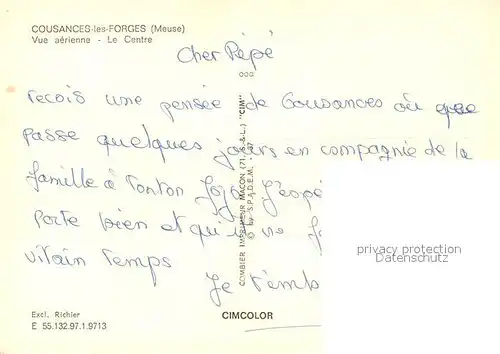 COUSANCES-les-FORGES (Meuse)
Vue aérienne - Le Centre
Cher Pépé
reçois une pensée de Cousances où que
passe quelques jours en compagnie de la
famille à Tonton Jojo J'espè
porte bien et qu
vilain temps
Je t'emb
COMBIER IMPRIMEUR MACON (71, S.-&-L.) "CIM"
© by S.P.A.D.E.M.
privacy protection
Datenschutz
Excl. Richier
E 55.132.97.1.9713
CIMCOLOR